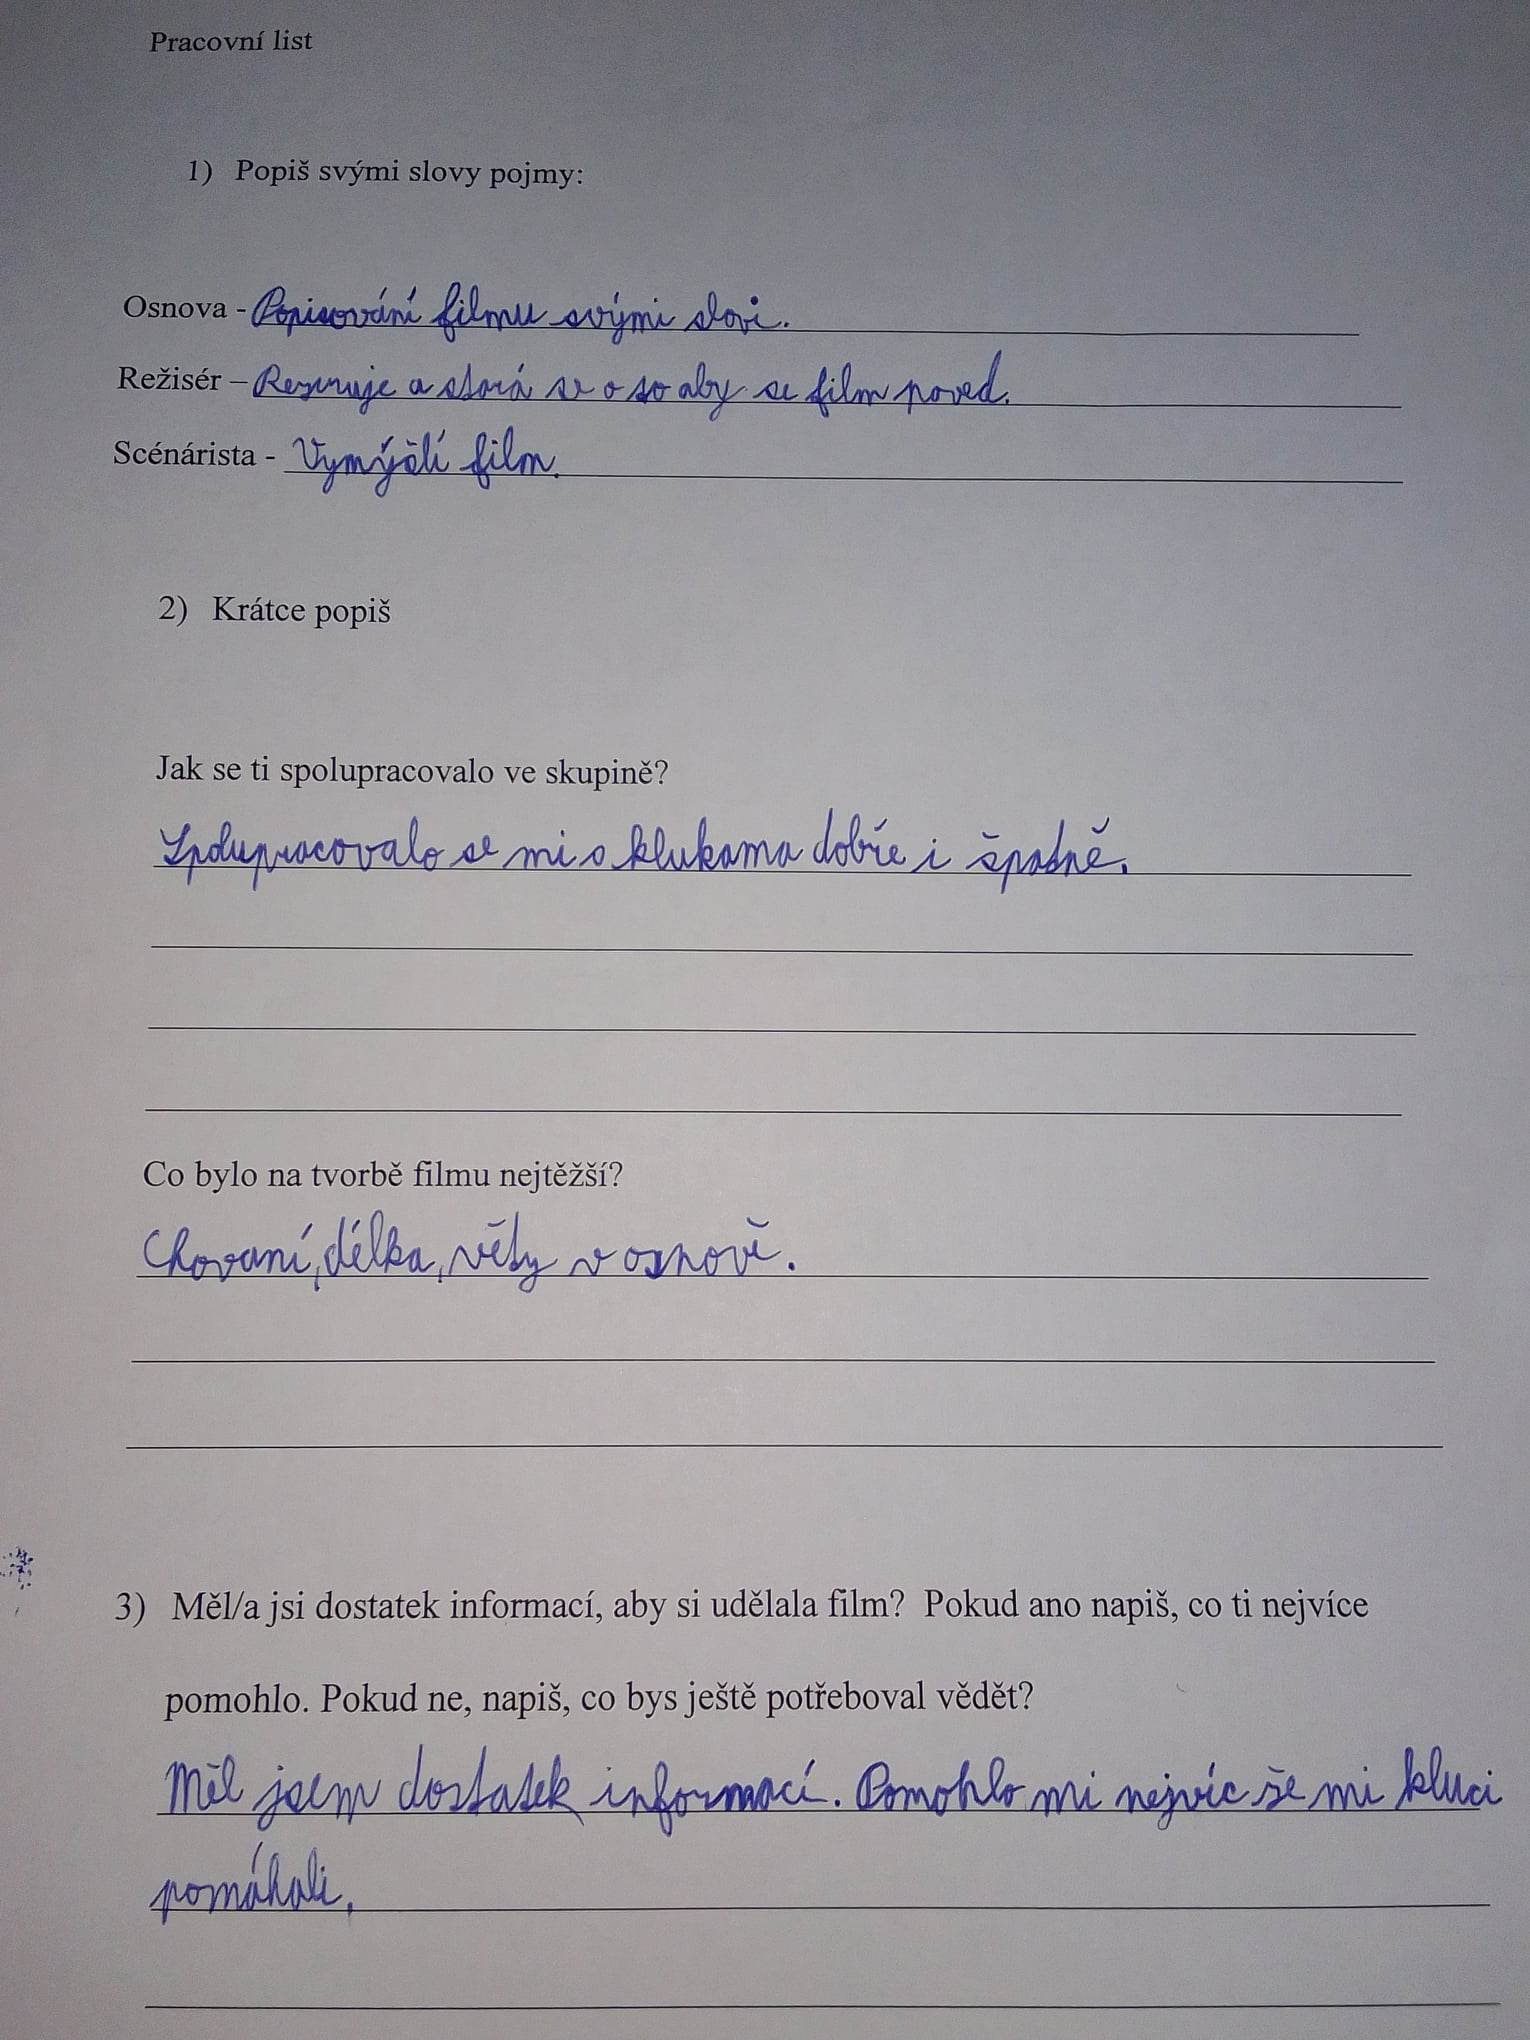 Pracovní list
1) Popiš svými slovy pojmy:
Osnova - Popisování filmu svými slovi.
Režisér – a stará se o to aby se film poved.
Scénárista - Vymýšlí film.
2) Krátce popiš
Jak se ti spolupracovalo ve skupině?
Spolupracovalo se mi s klukama dobře i špatně.
Co bylo na tvorbě filmu nejtěžší?
Chovaní, délka, věty v osnově.
3) Měl/a jsi dostatek informací, aby si udělala film? Pokud ano napiš, co ti nejvíce
pomohlo. Pokud ne, napiš, co bys ještě potřeboval vědět?
Měl jsem dostatek informací. Pomohlo mi nejvíc že mi kluci
pomáhali.